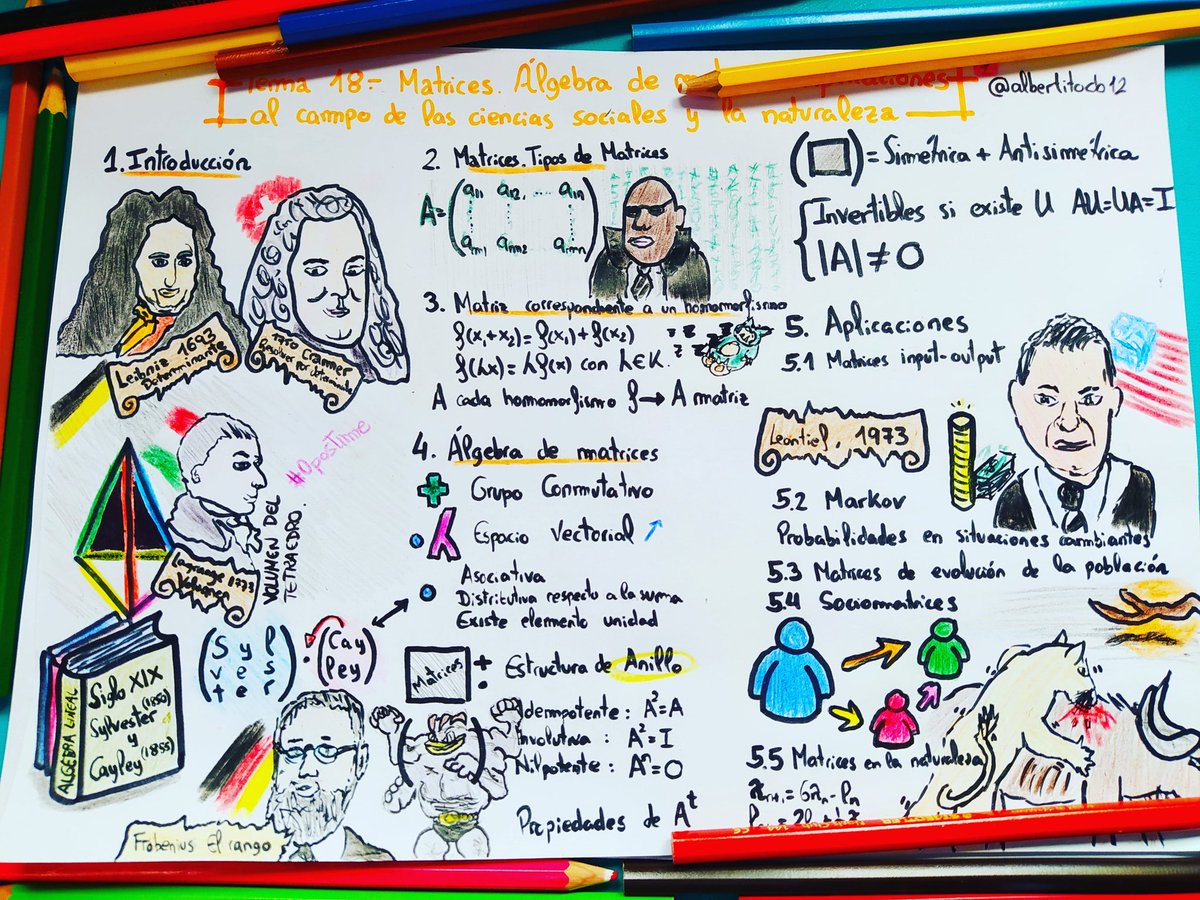 Tema 18.- Matrices. Álgebra de
al campo de las ciencias sociales y la naturaleza
@albertitocb12
1. Introducción
Leibniz 1693
Determinante
Cramer
Resolver por determinantes
#OposTime
Lagrange 1773
Volumen
VOLUMEN DEL
TETRAEDRO.
ÁLGEBRA LINEAL
Siglo XIX
Sylvester (1850)
y
Cayley (1855)
Sylvester
Cayley
Frobenius El rango
2. Matrices. Tipos de Matrices
A = (a11 a12 .... a1n
am1 am2 amn)
3. Matriz correspondiente a un homomorfismo
f(x1+x2) = f(x1) + f(x2)
f(λx) = λf(x) con λ∈K.
z z z z z
A cada homomorfismo f → A matriz
4. Álgebra de matrices
+ Grupo Conmutativo
· λ Espacio Vectorial
· Asociativa
Distributiva respecto a la suma
Existe elemento unidad
Matrices + · Estructura de Anillo
Idempotente: A²=A
Involutiva: A²=I
Nilpotente: Aⁿ=O
Propiedades de Aᵗ
( ) = Simétrica + Antisimétrica
Invertibles si existe U AU=UA=I
|A| ≠ O
5. Aplicaciones
5.1 Matrices input-output
Leontief, 1973
5.2 Markov
Probabilidades en situaciones cambiantes
5.3 Matrices de evolución de la población
5.4 Sociomatrices
5.5 Matrices en la naturaleza